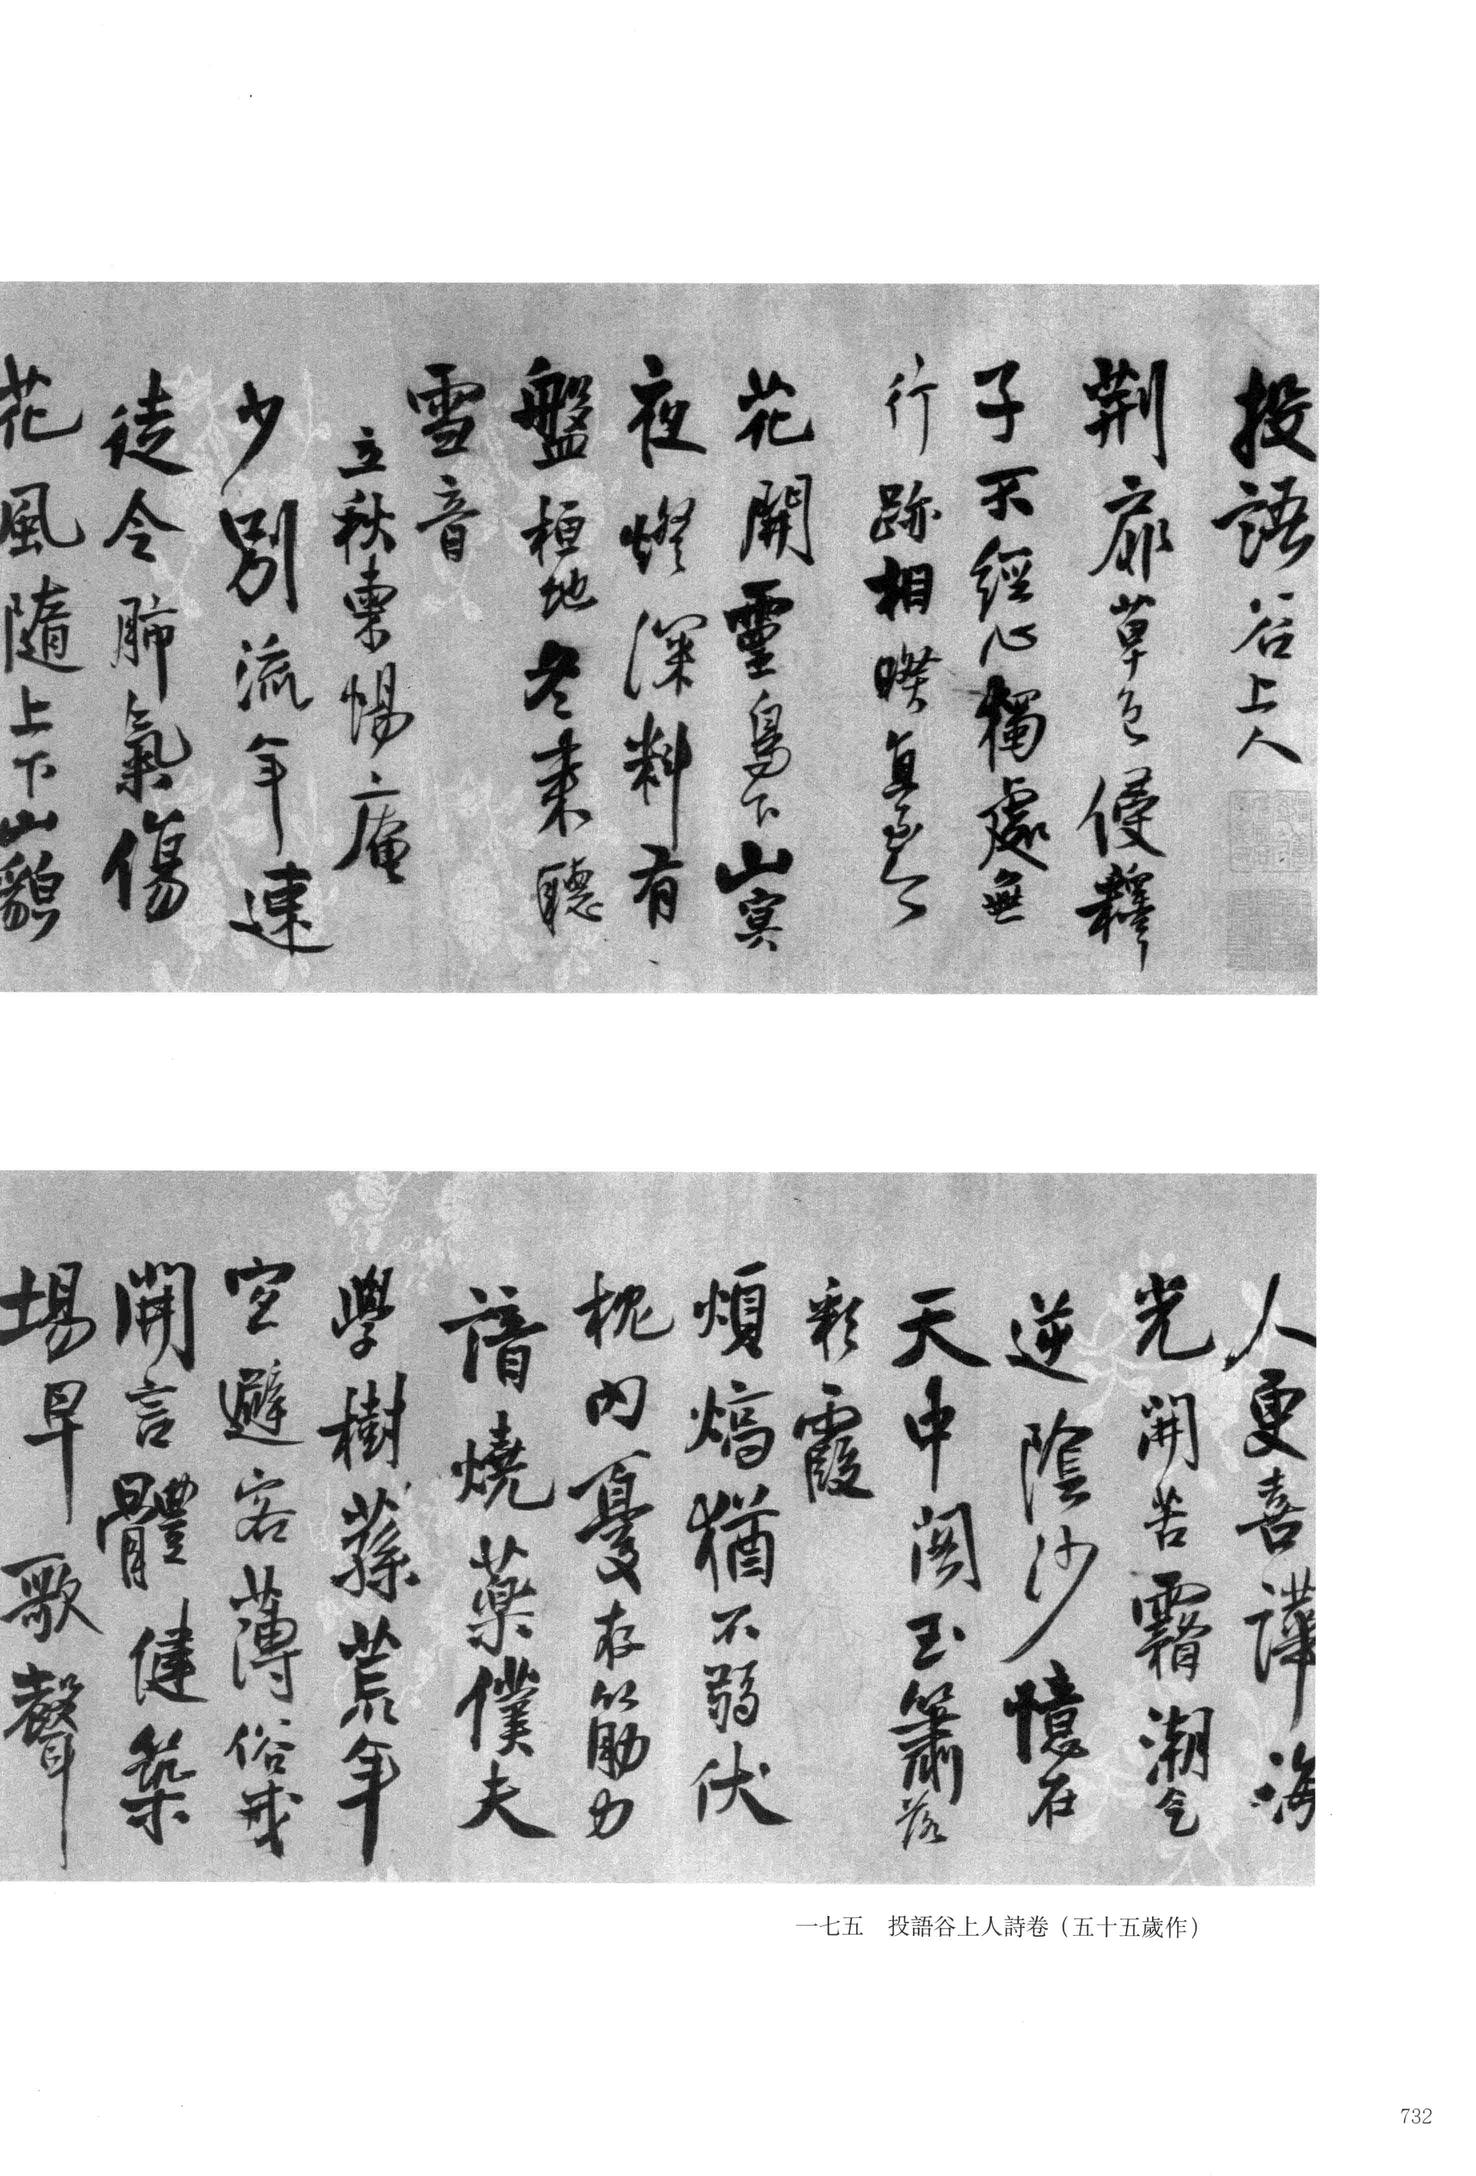 投語谷上人
荊扉草色侵釋
子不經心獨處無
行跡相暌直至今
花開靈鳥下山冥
夜燈深料有
盤桓地冬來聽
雪音
立秋柬惕庵
少別流年速
徒令肺氣傷
花風隨上下山貌
人更喜譁海
光開苦霧潮气
逆陰沙憶在
天中閣玉簫落
彩霞
煩熇猶不弱伏
枕內憂存筋力
諳燒藥僕夫
學樹蓀荒年
空避客薄俗戒
開言體健築
場早歌聲
一七五 投語谷上人詩卷(五十五歲作)
732